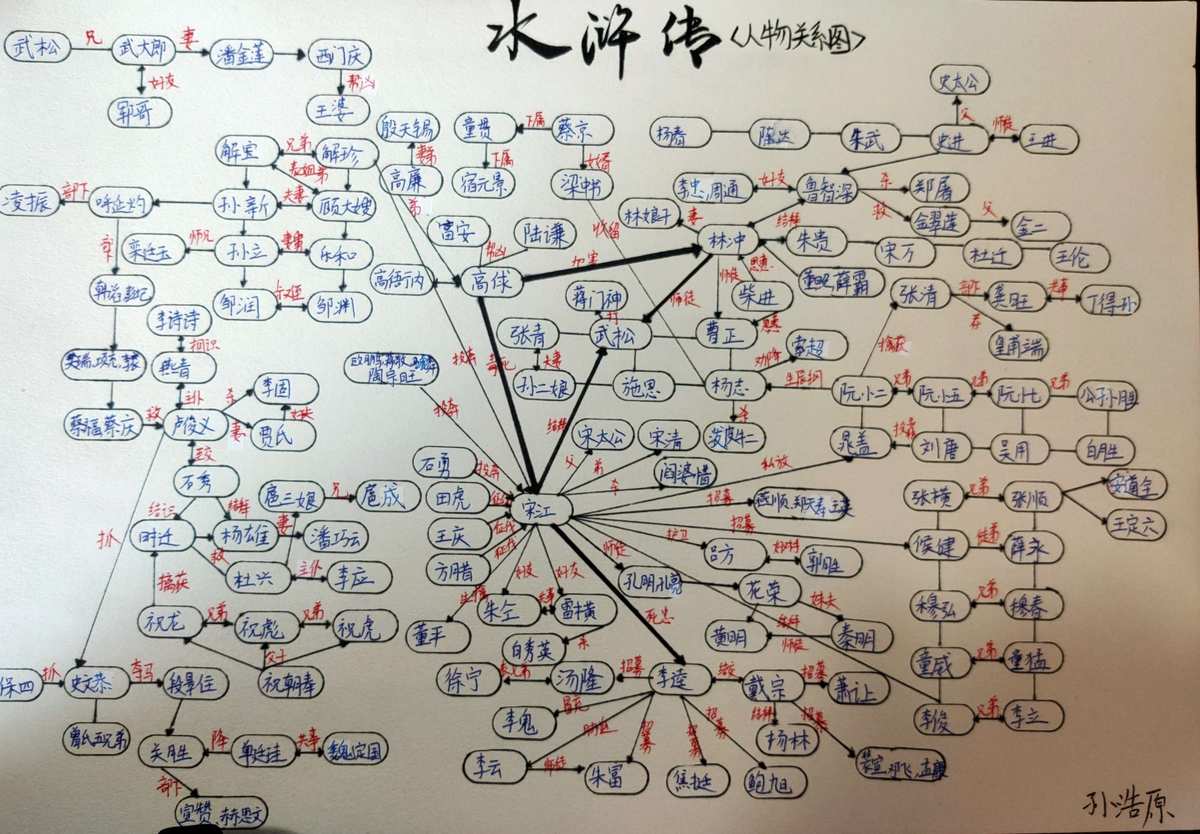 水浒传〈人物关系图〉
武松 兄 武大郎 妻 潘金莲 西门庆
好友 帮凶
郓哥 王婆
史太公
父
殷天锡 童贯 下属 蔡京 杨春 陈达 朱武 史进 师徒 王进
妻弟 下属 女婿
解宝 兄弟 解珍
表姐弟
高廉 宿元景 梁中书 李忠,周通 好友 鲁智深 杀 郑屠
弟 救 金翠莲 父 金二
凌振 部下 呼延灼 孙新 夫妻 顾大嫂
富安 陆谦 收留 林娘子 妻 结拜
林冲 朱贵 宋万 杜迁 王伦
栾廷玉 师兄 孙立 妻弟 乐和
帮凶 加害
高衙内 高俅 师徒 师徒 恩惠 董超,薛霸
蒋门神 柴进 张清 部下 龚旺 共事 丁得孙
邹润 叔侄 邹渊
李诗诗 张青 打 武松 曹正 恩惠 荐 皇甫端
相识 夫妻 索超 擒获
燕青 投奔 孙二娘 施恩 杨志 生辰纲 阮小二 兄弟 阮小五 兄弟 阮小七 兄弟 公孙胜
主仆 杀 李固
蔡福蔡庆 救 卢俊义 妻 贾氏
投奔 结拜 杀
宋太公 宋清 泼皮牛二 晁盖 投靠 刘唐 吴用 白胜
石秀 父 弟 阎婆惜 杀 私放
石勇 投奔
结识 结拜 扈三娘 兄 扈成 田虎 征伐 宋江 招募 燕顺,郑天寿,王英 张横 兄弟 张顺 安道全
时迁 杨雄 妻 潘巧云 王庆 征伐 招募 王定六
救 方腊 征伐 师徒 护卫 吕方 郭盛 侯健 师徒 薛永
杜兴 主仆 李应
抓 擒获 好友 好友 孔明孔亮 花荣 妹夫 穆弘 兄弟 穆春
祝龙 兄弟 祝彪 兄弟 祝虎 董平 朱仝 共事 雷横 死忠 黄明 师徒 秦明
父子 白秀英 杀 童威 兄弟 童猛
保四 抓 史文恭 夺马 段景住 祝朝奉 徐宁 表兄弟 汤隆 招募 李逵 戴宗 招募 萧让
李俊 兄弟 李立
曾氏五兄弟 李鬼 结拜 招募
关胜 降 单廷珪 共事 魏定国 杨林
李云 师徒 朱富 招募 焦挺 招募 招募 鲍旭
部下
宣赞,郝思文
孙浩原